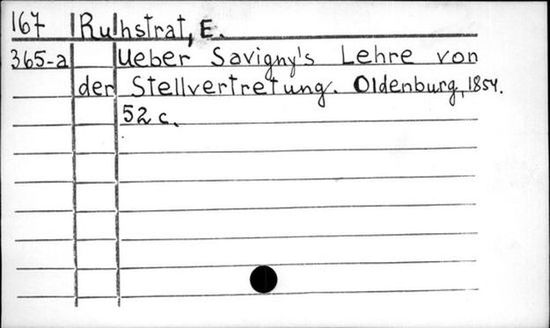 167 Ruhstrat, E.
365-a Ueber Savigny's Lehre von
der Stellvertretung. Oldenburg, 1854.
52 c.